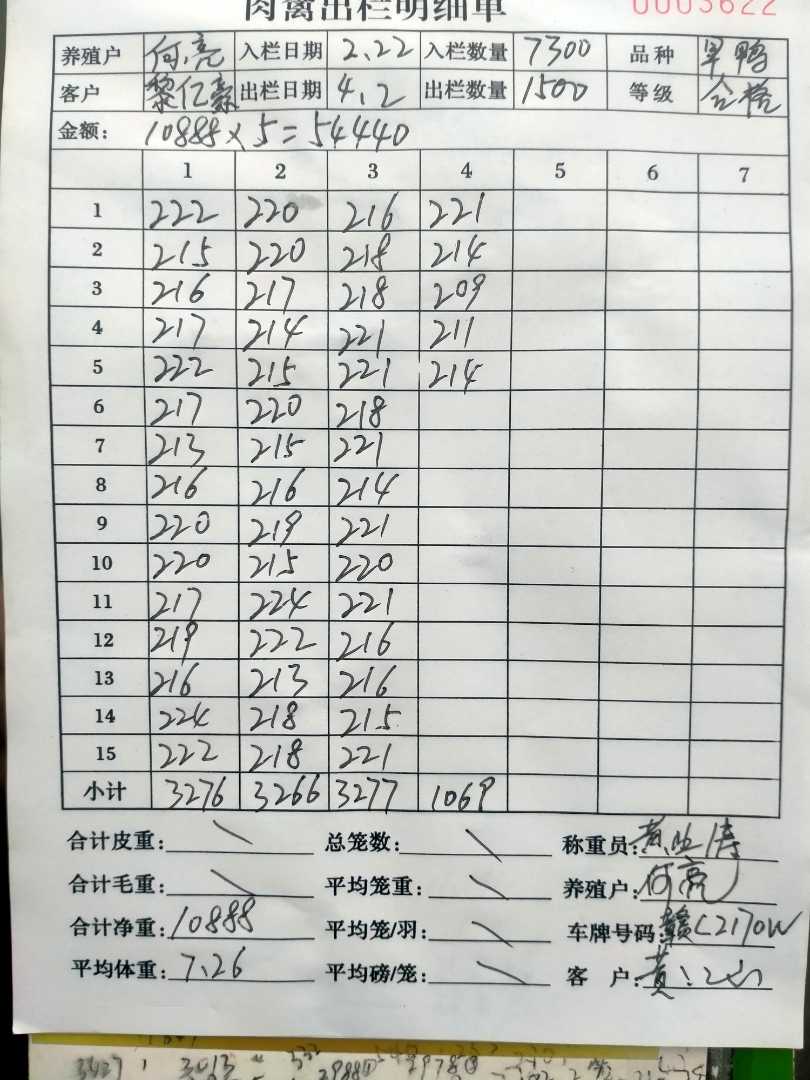 肉禽出栏明细单 0003622
养殖户 何亮 入栏日期 2.22 入栏数量 7300 品种 旱鸭
客户 黎亿霖 出栏日期 4.2 出栏数量 1500 等级 合格
金额: 10888×5=54440
1 2 3 4 5 6 7
1 222 220 216 221
2 215 220 218 214
3 216 217 218 209
4 217 214 221 211
5 222 215 221 214
6 217 220 218
7 213 215 221
8 216 216 214
9 220 219 221
10 220 215 220
11 217 224 221
12 219 222 216
13 216 213 216
14 224 218 215
15 222 218 221
小计 3276 3266 3277 1069
合计皮重: \ 总笼数: \ 称重员:
合计毛重: \ 平均笼重: \ 养殖户: 何亮
合计净重: 10888 平均笼/羽: \ 车牌号码: 赣C2170W
平均体重: 7.26 平均磅/笼: \ 客 户: 黄